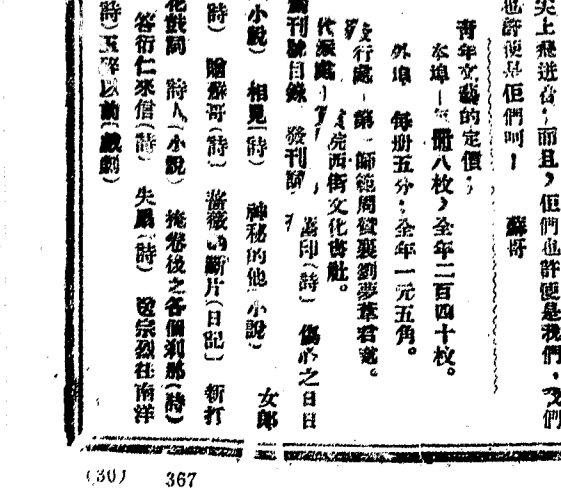 尖上飛迸着，而且，佢們也許便是我們，我們
也許便是佢們呵！ 蘇哥
青年文藝的定價：
本埠－每册八枚，全年二百四十枚。
外埠 每册五分，全年一元五角。
發行處－第一師範周贊襄劉夢葦君處。
代派處－ 院西街文化書社。
創刊號目錄 發刊詞 (詩) 傷心之日日
小說) 相見(詩) 神秘的他(小說) 女郎
(詩) 贈蘇哥(詩) 薔薇的斷片(日記) 新打
花鼓詞 詩人(小說) 掩卷後之各個刹那(詩)
答衍仁來信(詩) 失 (詩) 送宗烈往南洋
(詩) 玉碎以前(戲劇)
(30) 367